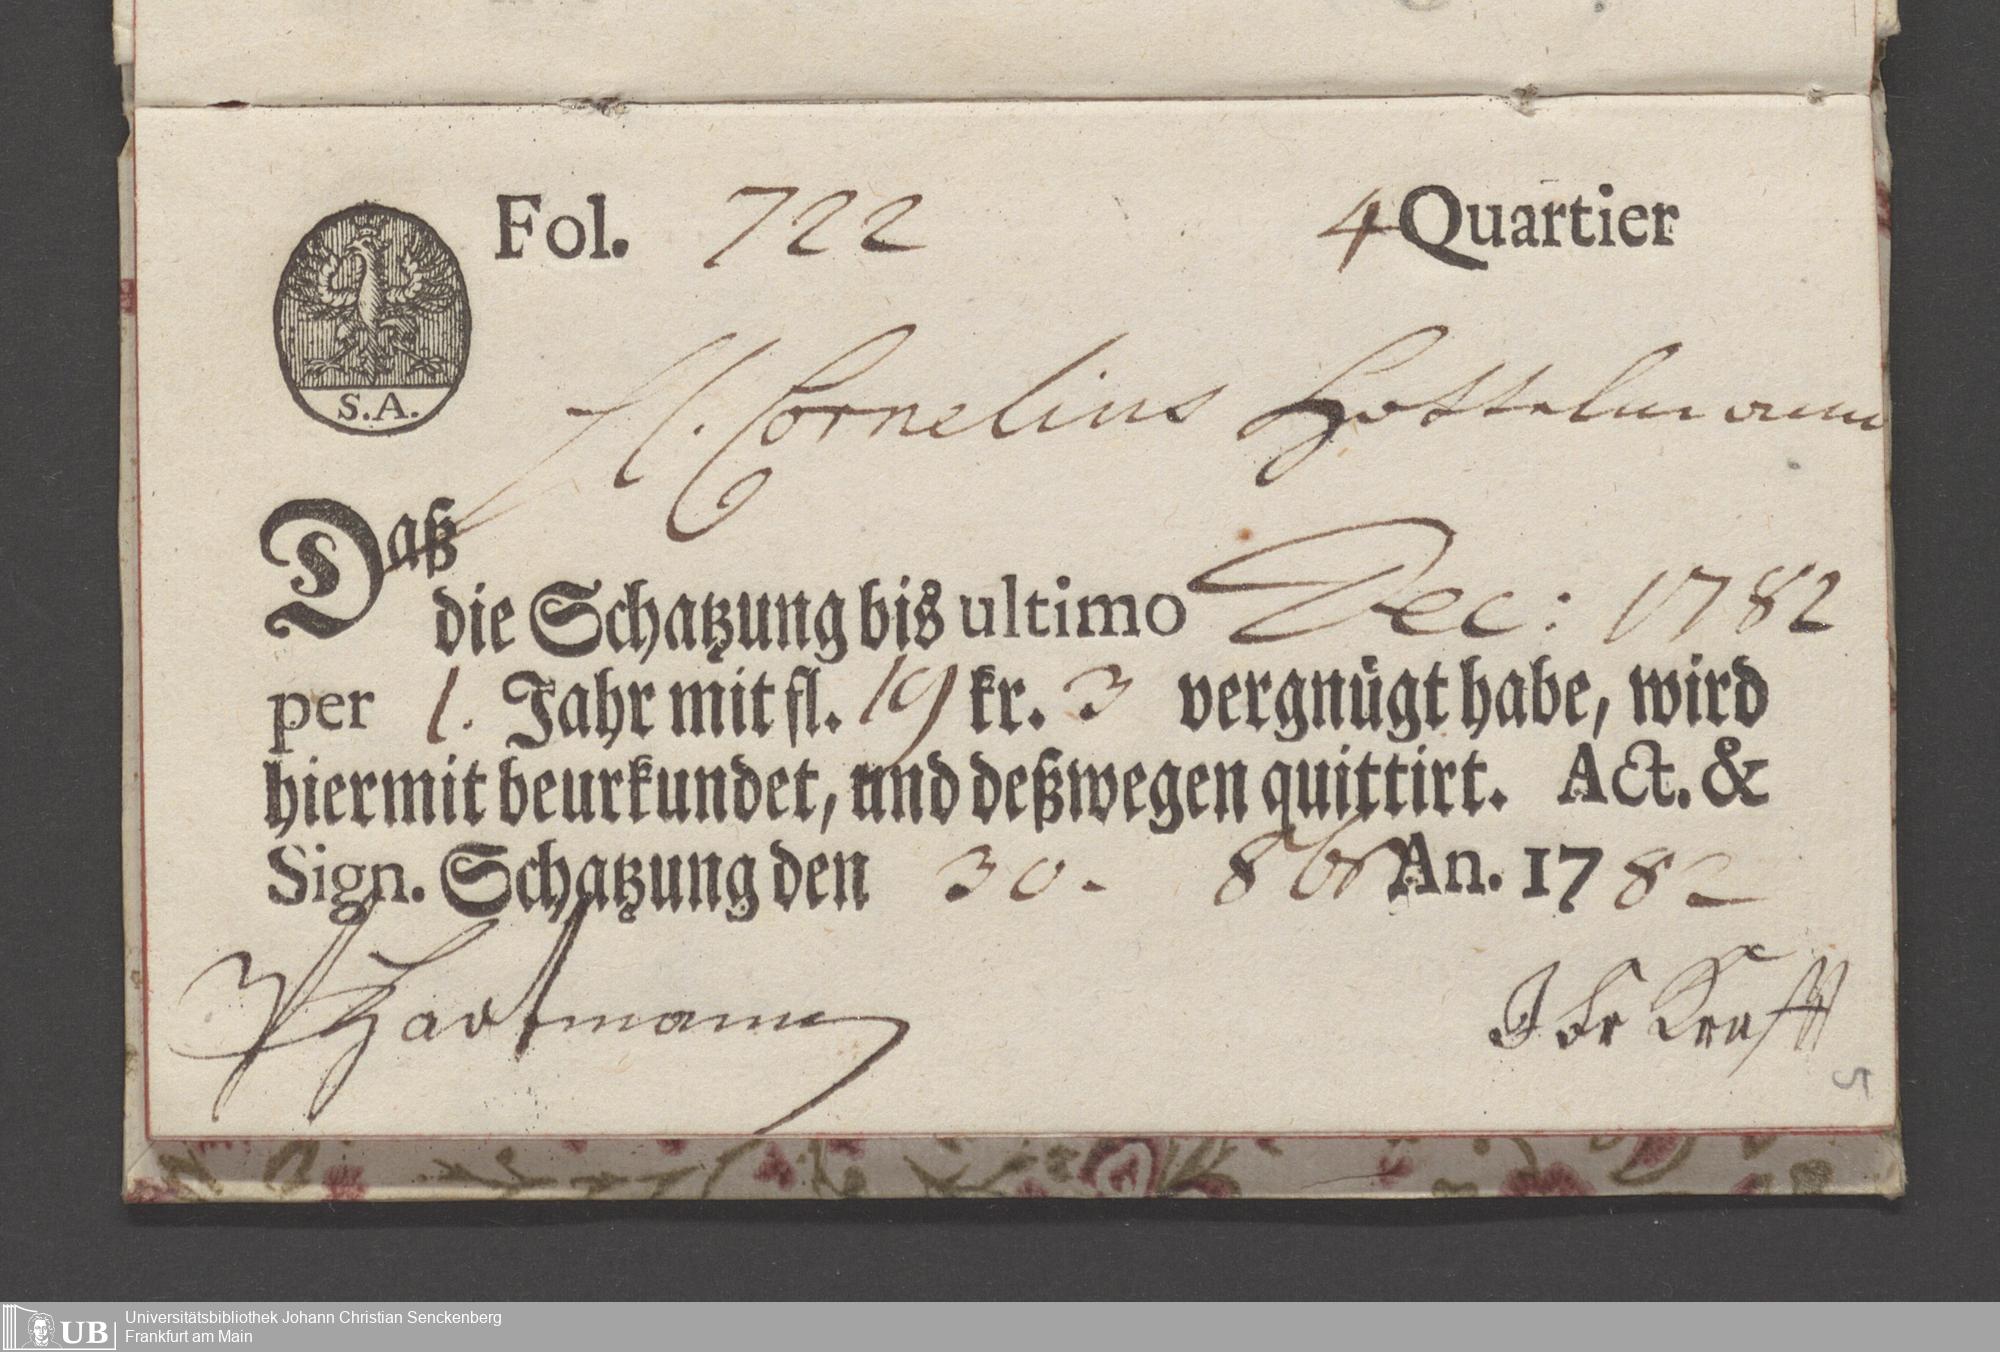 Fol. 722 4 Quartier
S.A.
H. Cornelius
Daß
die Schatzung bis ultimo Dec: 1782
per 1. Jahr mit fl. 19 kr. 3 vergnügt habe, wird
hiermit beurkundet, und deßwegen quittirt. Act. &
Sign. Schatzung den 30. 8br An. 1782
Hartmann
Kraft
5
Universitätsbibliothek Johann Christian Senckenberg
UB Frankfurt am Main